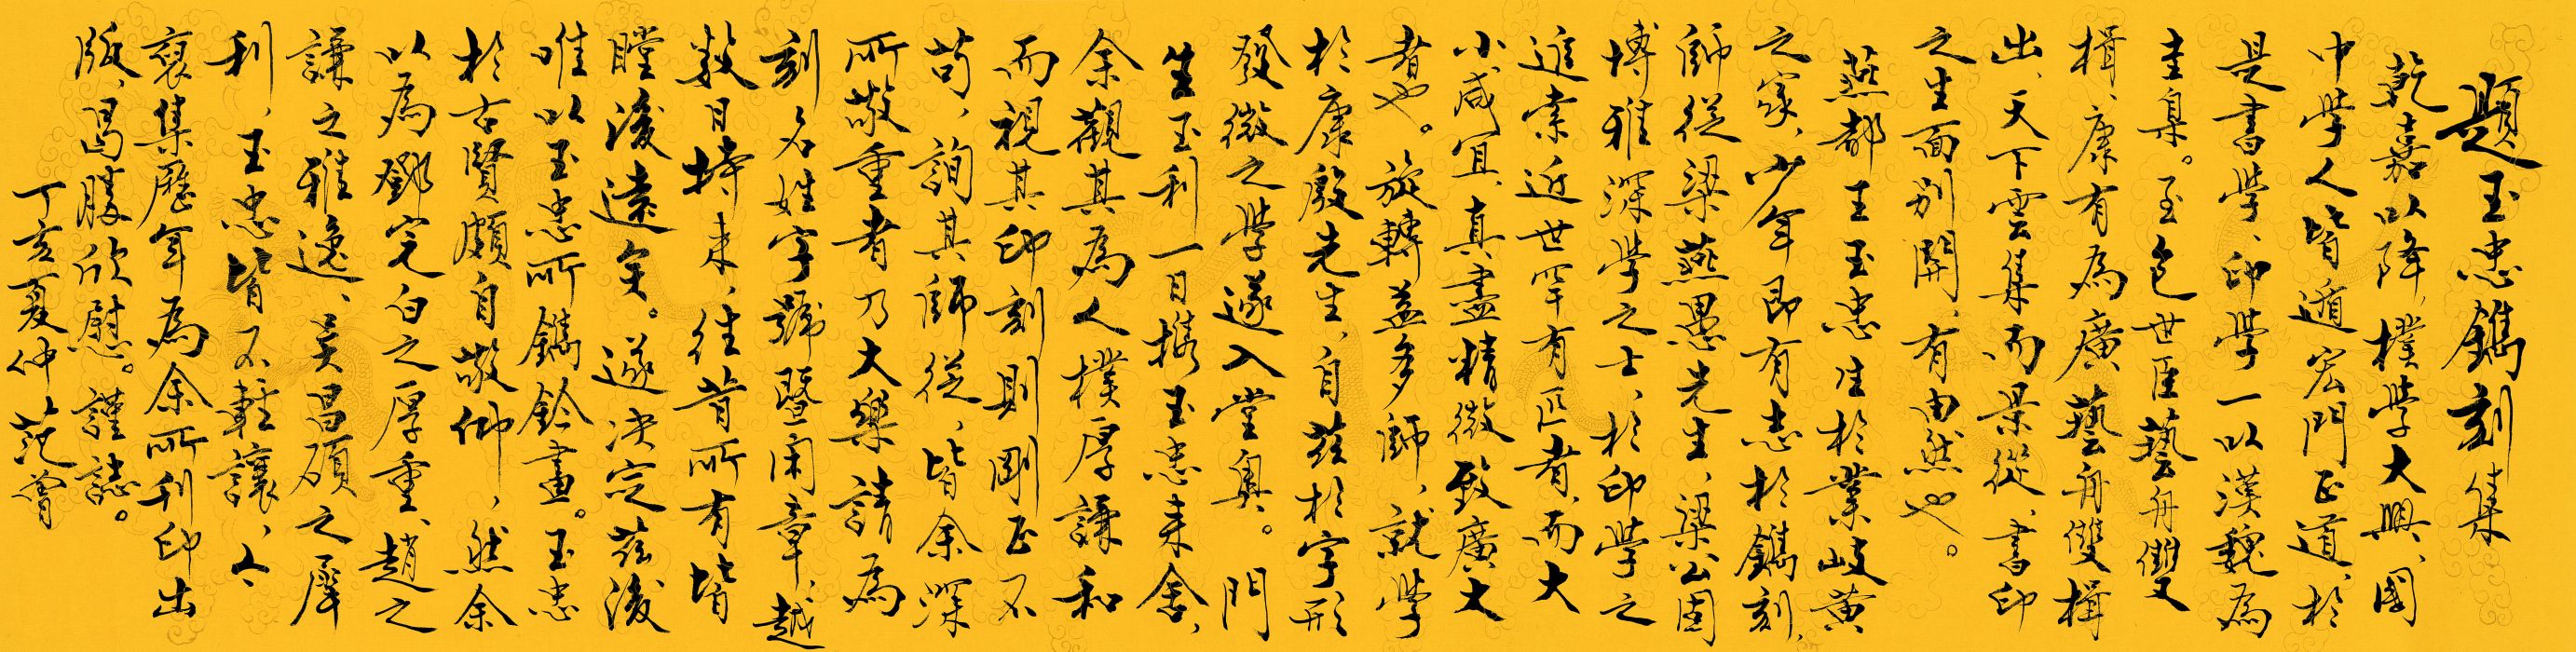 題玉忠鐫刻集
乾嘉以降，樸學大興，國
中學人皆遁宏門正道，於
是書學、印學一以漢魏為
圭臬。至包世臣藝舟雙
楫、康有為廣藝舟雙楫
出，天下雲集而景從，書印
之生面別開，有由然也。
燕都王玉忠生於業岐黃
之家，少年即有志於鐫刻，
師從梁燕愚先生，梁公固
博雅深學之士，於印學之
進索近世罕有匹者，而大
小咸宜，真盡精微致廣大
者也。旋轉益多師，就學
於康殷先生，自茲於字形
發微之學遂入堂奧。門
生玉利一日攜玉忠來舍，
余觀其為人樸厚謙和
而視其印刻則剛正不
苟，詢其師從，皆余深
所敬重者乃大樂請為
刻名姓字號暨閑章，越
數日持來，往昔所有皆
瞠後遠矣。遂決定茲後
唯以玉忠所鐫鈐畫。玉忠
於古賢頗自敬仰，然余
以為鄧完白之厚重、趙之
謙之雅逸、吳昌碩之犀
利，玉忠皆不輕讓，今
裒集歷年為余所刊印出
版，曷勝欣慰。謹誌。
丁亥夏仲 范曾